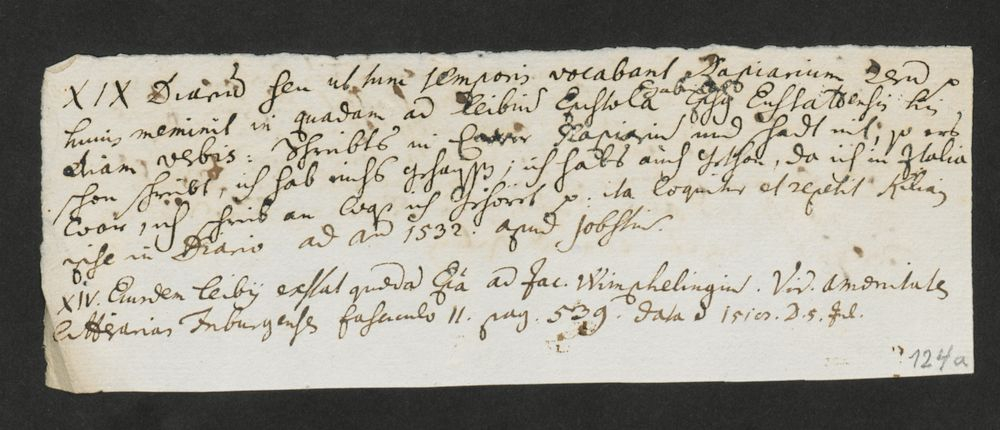 XIX Diariũ seu ut tunc temporis vocabant Rapiarium
huius meminit in quadam ad Leibiũ Epistola Eystettensis his
etiam verbis: Schreibts in Ewer Rapiarim und schadt nit, ers
schon schreibt, ich hab nichs gehayß, ich habs auch gethon, da ich in Italia
war, ich schrib an was ich gehört p. ita loquitur et repetit Kilian
ipse in Diario ad añ 1532. apud Jobstin.
XIV. Eiusdem Leibij exstat quedã Epĩa ad Jac. Wimphelingiũ. Vid. amœnitates
litterarias Friburgenses fasciculo II. pag. 539. data D. 5. Jul.
124a